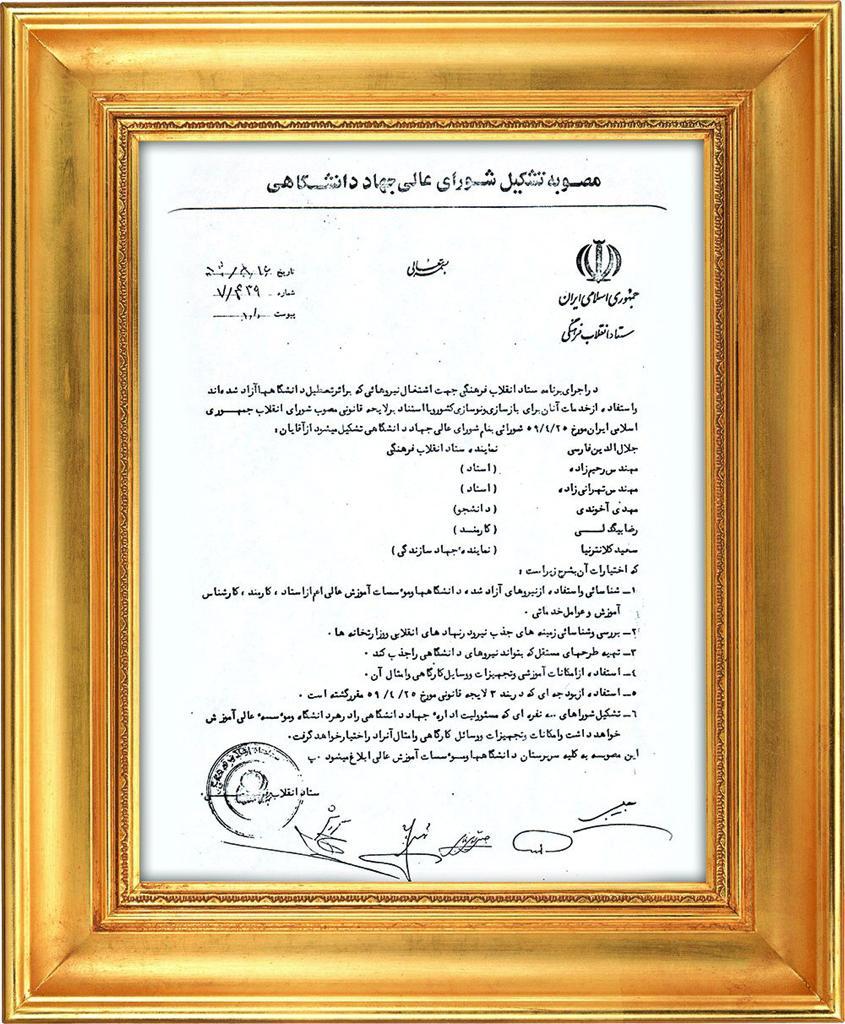 مصوبه تشکیل شورای عالی جهاد دانشگاهی
بسمه تعالی
جمهوری اسلامی ایران
ستاد انقلاب فرهنگی
تاریخ
شماره ۷/۴۳۹
پیوست
در اجرای برنامه ستاد انقلاب فرهنگی جهت اشتغال نیروهائی که براثر تعطیل دانشگاهها آزاد شده اند
و استفاده از خدمات آنان برای بازسازی و نوسازی کشور و با استناد بر لایحه قانونی مصوب شورای انقلاب جمهوری
اسلامی ایران مورخ ۵۹/۴/۲۵ شورائی بنام شورای عالی جهاد دانشگاهی تشکیل میشود از آقایان :
جلال الدین فارسی نماینده ستاد انقلاب فرهنگی
مهندس رحیم زاده ( استاد )
مهندس تهرانی زاده ( استاد )
مهدی آخوندی ( دانشجو )
رضا بیگدلی ( کارمند )
سعید کلانترنیا ( نماینده جهاد سازندگی )
که اختیارات آن بشرح زیر است :
۱- شناسائی و استفاده از نیروهای آزاد شده دانشگاهها و موسسات آموزش عالی اعم از استاد ، کارمند ، کارشناس
آموزش و عوامل خدماتی .
۲- بررسی و شناسائی زمینه های جذب نیرو در نهاد های انقلابی و وزارتخانه ها .
۳- تهیه طرحهای مستقل که بتواند نیروهای دانشگاهی را جذب کند .
۴- استفاده از امکانات آموزشی و تجهیزات و وسایل کارگاهی و امثال آن .
۵- استفاده از بودجه ای که در بند ۲ لایحه قانونی مورخ ۵۹/۴/۲۵ مقرر گشته است .
۶- تشکیل شوراهای نفره ای که مسئولیت اداره جهاد دانشگاهی را در هر دانشگاه و موسسه عالی آموزش
خواهد داشت و امکانات و تجهیزات و وسائل کارگاهی و امثال آنرا در اختیار خواهد گرفت .
این مصوبه به کلیه سرپرستان دانشگاهها و موسسات آموزش عالی ابلاغ میشود .
ستاد انقلاب